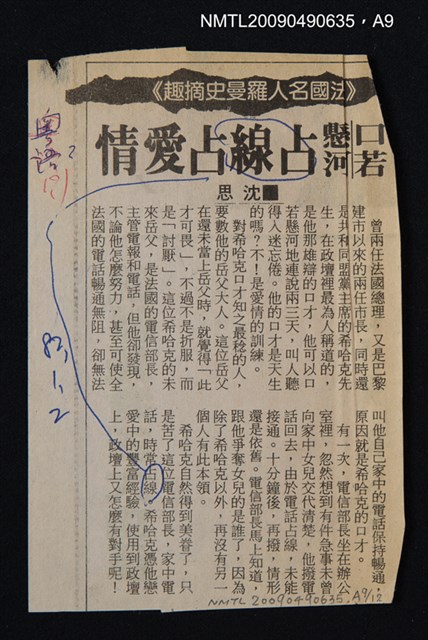 NMTL20090490635，A9
《法國名人羅曼史摘趣》
口若
懸河
占線占愛情
沈思
曾兩任法國總理，又是巴黎
建市以來的兩任市長，同時還
是共和同盟黨主席的希哈克先
生，在政壇裡最為人稱道的，
是他那雄辯的口才，他可以口
若懸河地連說兩三天，叫人聽
得人迷忘倦。他的口才是天生
的嗎？不！是愛情的訓練。
對希哈克口才知之最稔的人，
要數他的岳父大人。這位岳父
在還未當上岳父時，就覺得「此
才可畏」，不過不是折服，而
是「討厭」。這位希哈克的未
來岳父，是法國的電信部長，
主管電報和電話，但他卻發現，
不論他怎麼努力，甚至可使全
法國的電話暢通無阻，卻無法
叫他自己家中的電話保持暢通，
原因就是希哈克的口才。
有一次，電信部長坐在辦公
室裡，忽然想到有件急事未曾
向家中女兒交代清楚，他撥電
話回去，由於電話占線，未能
接通。十分鐘後，再撥，情形
還是依舊。電信部長馬上知道，
跟他爭奪女兒的是誰了，因為
除了希哈克以外，再沒有另一
個人有此本領。
希哈克自然得到美眷了，只
是苦了這位電信部長，家中電
話，時常占線。希哈克憑他戀
愛中的豐富經驗，使用到政壇
上，政壇上又怎麼有對手呢！
粵語
?
(2)
83.1.2
NMTL 20090490635. A9/12